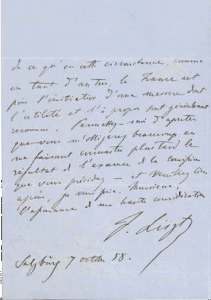 de ce qu'en cette circonstance, comme
en tant d'autres, la France ait
pris l'initiative d'une mesure dont
l'utilité et l'à propos sont généralement
reconnus. Permettez-moi d'ajouter
que vous m'obligerez beaucoup en
me faisant connaître plus tard le
résultat de l'examen de la commission
que vous présidez – et veuillez bien
agréer, je vous prie, Monsieur,
l'assurance de ma haute considération
F. Liszt
Salzburg 7 octobre 58.